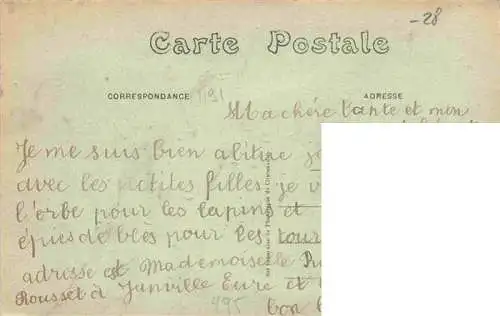 -28
Carte Postale
CORRESPONDANCE
ADRESSE
Ma chére tante et mon
Je me suis bien abitue
avec les petites filles je
l'orbe pour les lapins et
épis de bles pour les tour
adresse est Mademoiselle
Rousset à Janville Eure et
495 bon